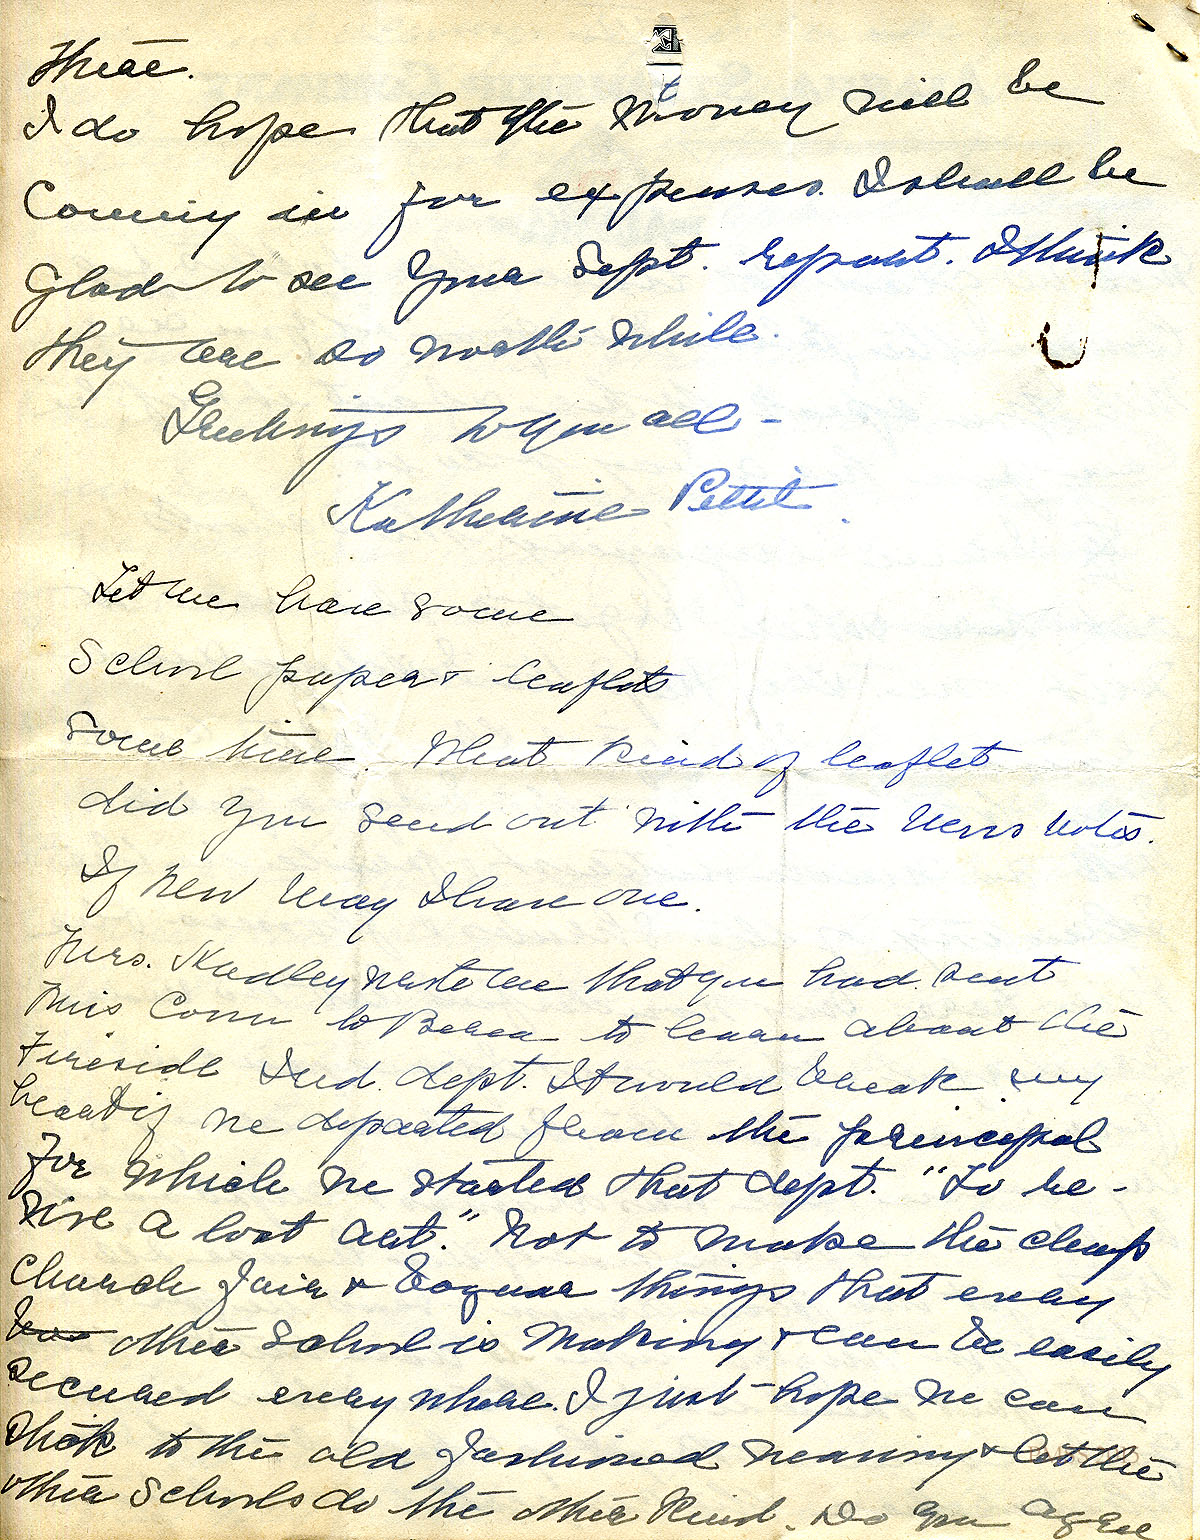 there.
I do hope that the money will be
Coming in for expenses. I shall be
glad to see your Sept. report. I think
they are so worth while.
Greetings to you all -
Katherine Pettit.
Let me have some
School papers & leaflets
some time. What kind of leaflet
did you send out with the News Notes.
If new may I have one.
Mrs. Hadley wrote me that you had sent
Miss Conn to Berea to learn about the
Fireside Ind. dept. It would break my
heart if we departed from the principal
for which we started that dept. "To re-
vive a lost art." Not to make the cheap
church fair & Bazaar things that every
other school is making & can be easily
secured every where. I just hope we can
stick to the old fashioned weaving & let the
other schools do the other kind. Do you agree